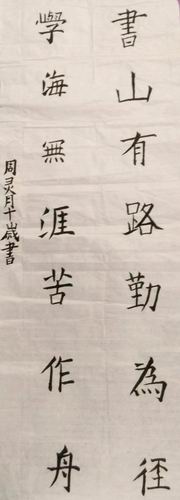 書山有路勤為徑
學海無涯苦作舟
周灵月十歲書